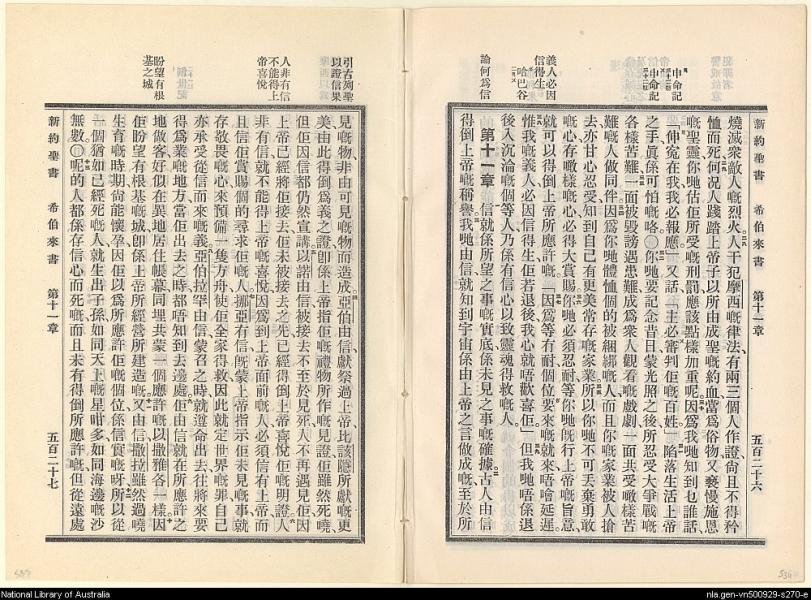 申命記
申命記
義人必因
信得生
哈巴谷
論何爲信
新約聖書 希伯來書 第十一章 五百二十六
燒滅衆敵人嘅烈火人干犯摩西嘅律法有兩三個人作證尙且不得矜
恤而死何况人踐踏上帝子以所由成聖嘅約血當爲俗物又褻慢施恩
嘅聖靈你哋估佢所受嘅刑罰應該點樣加重呢因爲我哋知到乜誰話
伸寃在我我必報應又話主必審判佢嘅百姓陷落生活上帝
之手眞係可怕嘅咯〇你哋要記念昔日蒙光照之後所忍受大爭戰嘅
各樣苦難一面被毀謗遇患難成爲衆人觀看嘅戲劇一面共受噉樣苦
難嘅人做同伴因爲你哋體恤個的被綑綁嘅人而且你哋家業被人搶
去亦甘心忍受知到自己有更美常存嘅家業所以你哋不可丟棄勇敢
嘅心存噉樣嘅心必得大賞賜你哋必須忍耐等你哋旣行上帝嘅旨意
就可以得倒上帝所應許嘅因爲等有耐個位要來嘅就來唔會延遲
惟我嘅義人必因信得生佢若退後我心就唔歡喜佢但我哋唔係退
後入沉淪嘅個等人乃係有信心以致靈魂得救嘅人
第十一章 信就係所望之事嘅實底係未見之事嘅確據古人由信
得倒上帝嘅稱譽我哋由信就知到宇宙係由上帝之言做成嘅至於所
引古列聖
以證信果
人非有信
不能得上
帝喜悅
盼望有根
基之城
見嘅物非由可見嘅物而造成亞伯由信獻祭過上帝比該隱所獻嘅更
美由此得倒爲義之證卽係上帝指佢嘅禮物所作嘅見證佢雖然死嘵
但佢因信都仍然宣講以諾由信被接去不至於見死人不再遇見佢因
上帝已經將佢接去佢未被接去之先已經得倒上帝喜悅佢嘅明證人
非有信就不能得上帝嘅喜悅因爲到上帝面前嘅人必須信有上帝而
且信佢賞賜個的尋求佢嘅人挪亞有信旣蒙上帝指示佢未見嘅事就
存敬畏嘅心來預備一隻方舟使佢全家得救因此就定世界嘅罪自己
亦承受從信而來嘅義亞伯拉罕由信蒙召之時就遵命出去往將來要
得爲業嘅地方當佢出去之時都唔知到去邊處佢由信就在所應許之
地做客好似在異地居住帳幕同埋共蒙一個應許嘅以撒雅各一樣因
佢盼望有根基嘅城卽係上帝所經營所建造嘅又由信撒拉雖然過嘵
生育嘅時期尙能懷孕因佢以爲所應許佢嘅個位係信實嘅呀所以從
一個猶如已經死嘅人就生出子孫如同天上嘅星咁多如同海邊嘅沙
無數〇呢的人都係存信心而死嘅而且未有得倒所應許嘅但從遠處
新約聖書 希伯來書 第十一章 五百二十七
National Library of Australia
nla.gen-vn500929-s270-e